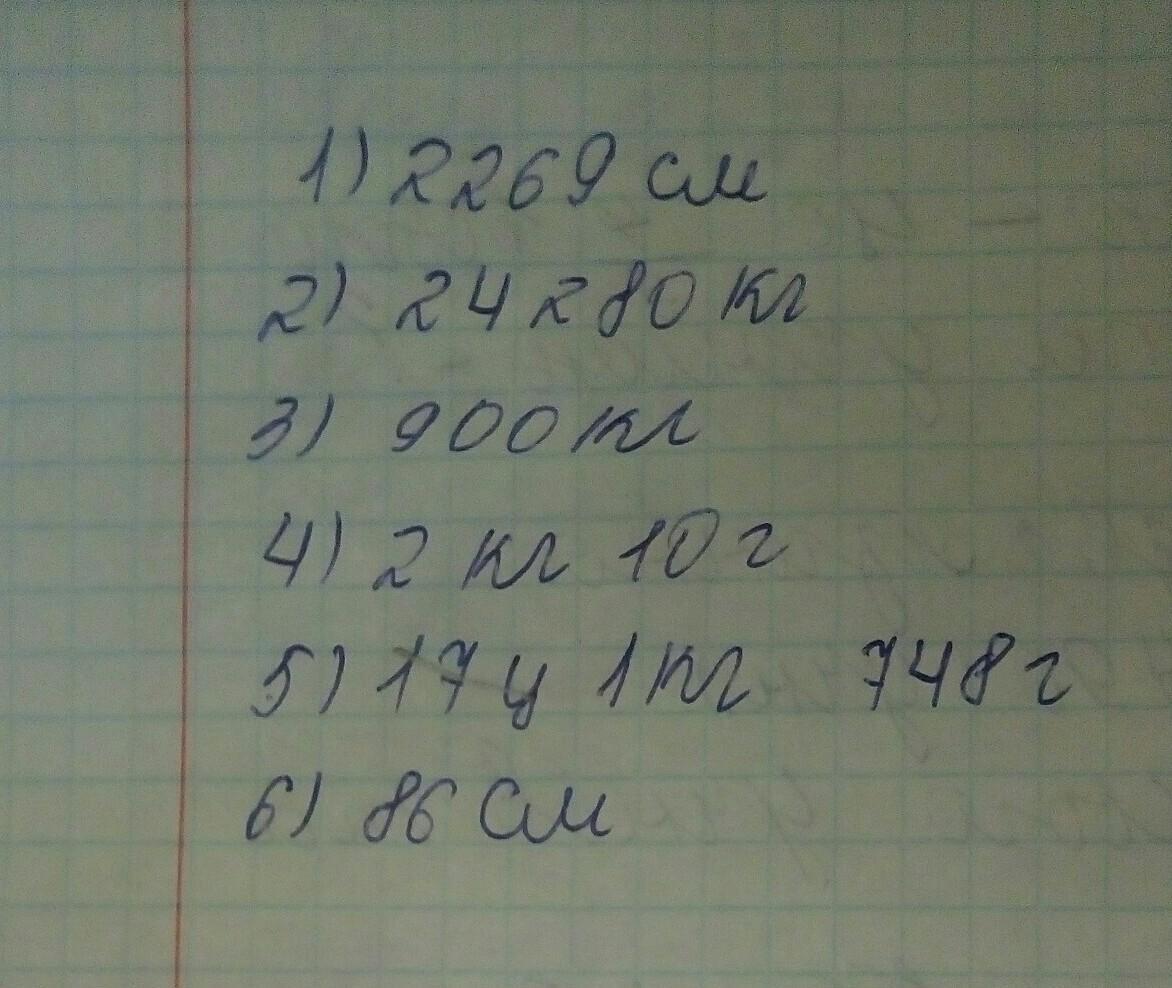 1) 2269 см
2) 24 280 кг
3) 900 кг
4) 2 кг 10 г
5) 17 ц 1 кг 748 г
6) 86 см